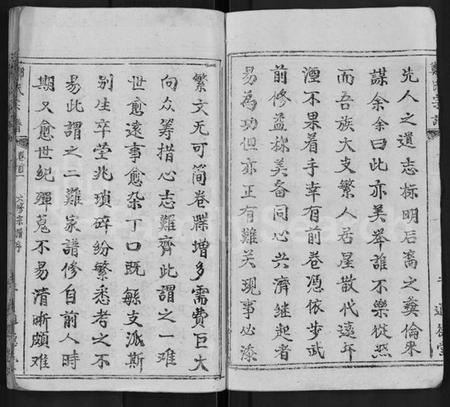 先人之遺志标明后裔之彝倫來
謀余余曰此亦美舉誰不樂從然
而吾族大支繁人居星散代遠年
湮不果着手幸有前卷憑依步武
前修益称美备同心共濟继起者
易為功但亦正有難矣现事必添
繁文无可简卷牒增多需费巨大
向众筹措心志難齊此謂之一难
世愈遠事愈杂丁口既緐支派斯
别生卒莹兆瑣碎纷繁悉考之不
易此謂之二难家譜修自前人時
期又愈世紀殫蒐不易清晰頗难